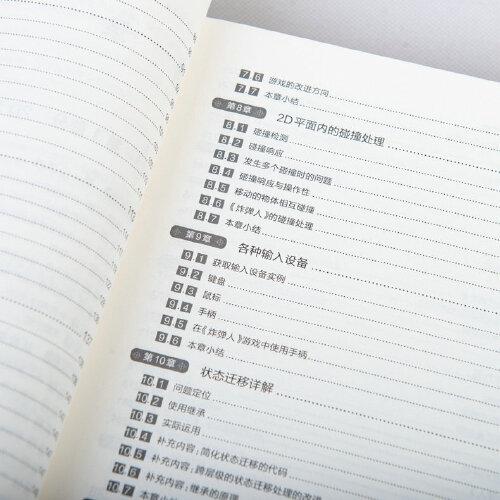 7.6 游戏的改进方向
7.7 本章小结
第8章 2D平面内的碰撞处理
8.1 碰撞检测
8.2 碰撞响应
8.3 发生多个碰撞时的问题
8.4 碰撞响应与操作性
8.5 移动的物体相互碰撞
8.6 《炸弹人》的碰撞处理
8.7 本章小结
第9章 各种输入设备
9.1 获取输入设备实例
9.2 键盘
9.3 鼠标
9.4 手柄
9.5 在《炸弹人》游戏中使用手柄
9.6 本章小结
第10章 状态迁移详解
10.1 问题定位
10.2 使用继承
10.3 实际运用
10.4 补充内容：简化状态迁移的代码
10.5 补充内容：跨层级的状态迁移处理的改
10.6 补充内容：继承的原理
10.7 本章小结